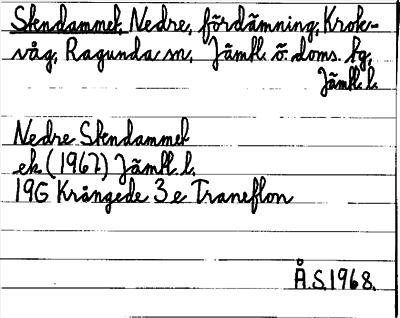 Stendammet, Nedre, fördämning, Krok-
våg, Ragunda sn, Jämtl. ö. doms. tg,
Jämtl. l.
Nedre Stendammet
ek (1967) Jämtl. l.
19G Krångede 3 e Traneflon
Å.S. 1968.